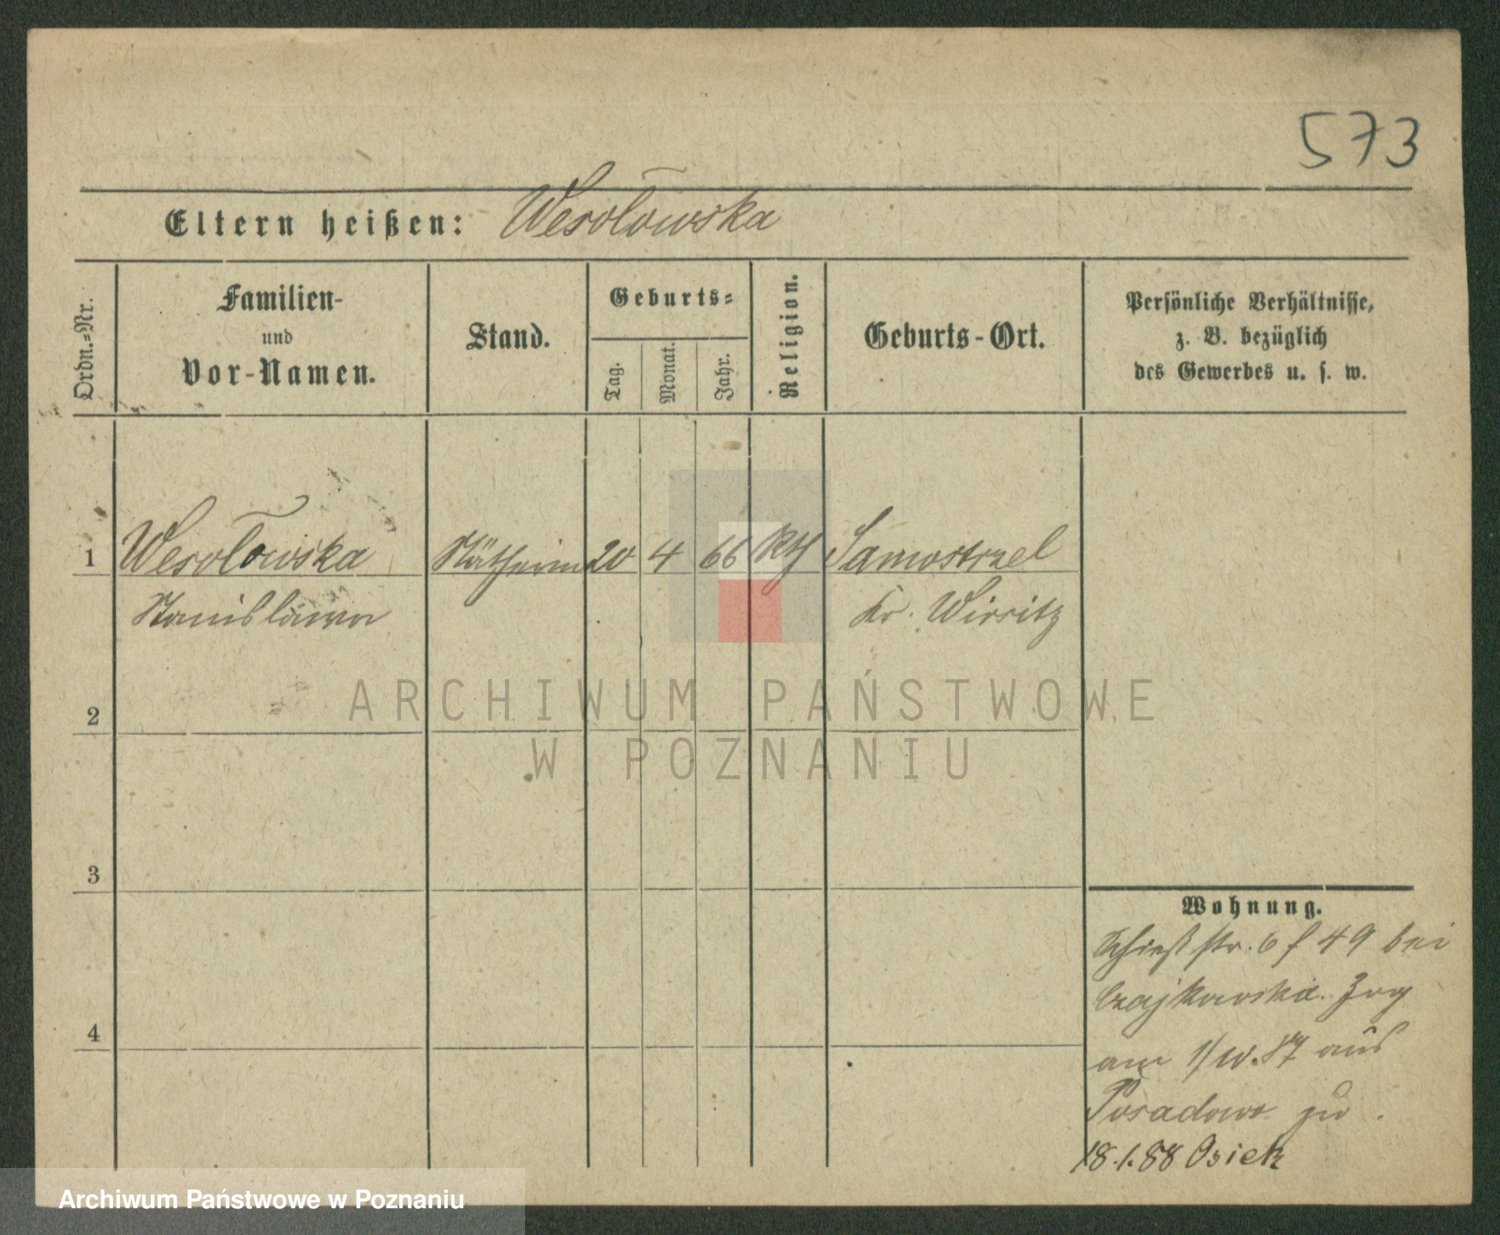 573
Eltern heißen: Wesołowska
Ordn.-Nr.
Familien-
und
Vor-Namen.
Stand.
Geburts-
Tag.
Monat.
Jahr.
Religion.
Geburts-Ort.
Persönliche Verhältnisse,
z. B. bezüglich
des Gewerbes u. s. w.
1 Wesołowska Nätherin 20 4 66 Kth Samostrzel
Stanislawa Kr. Wirsitz
2
3
4
Wohnung.
Schießstr. 6 f 49 bei
Czajkowska. Zog
am 1/10.87 aus
Posadowo zu.
18.1.88 Osiek
ARCHIWUM PAŃSTWOWE
W POZNANIU
Archiwum Państwowe w Poznaniu